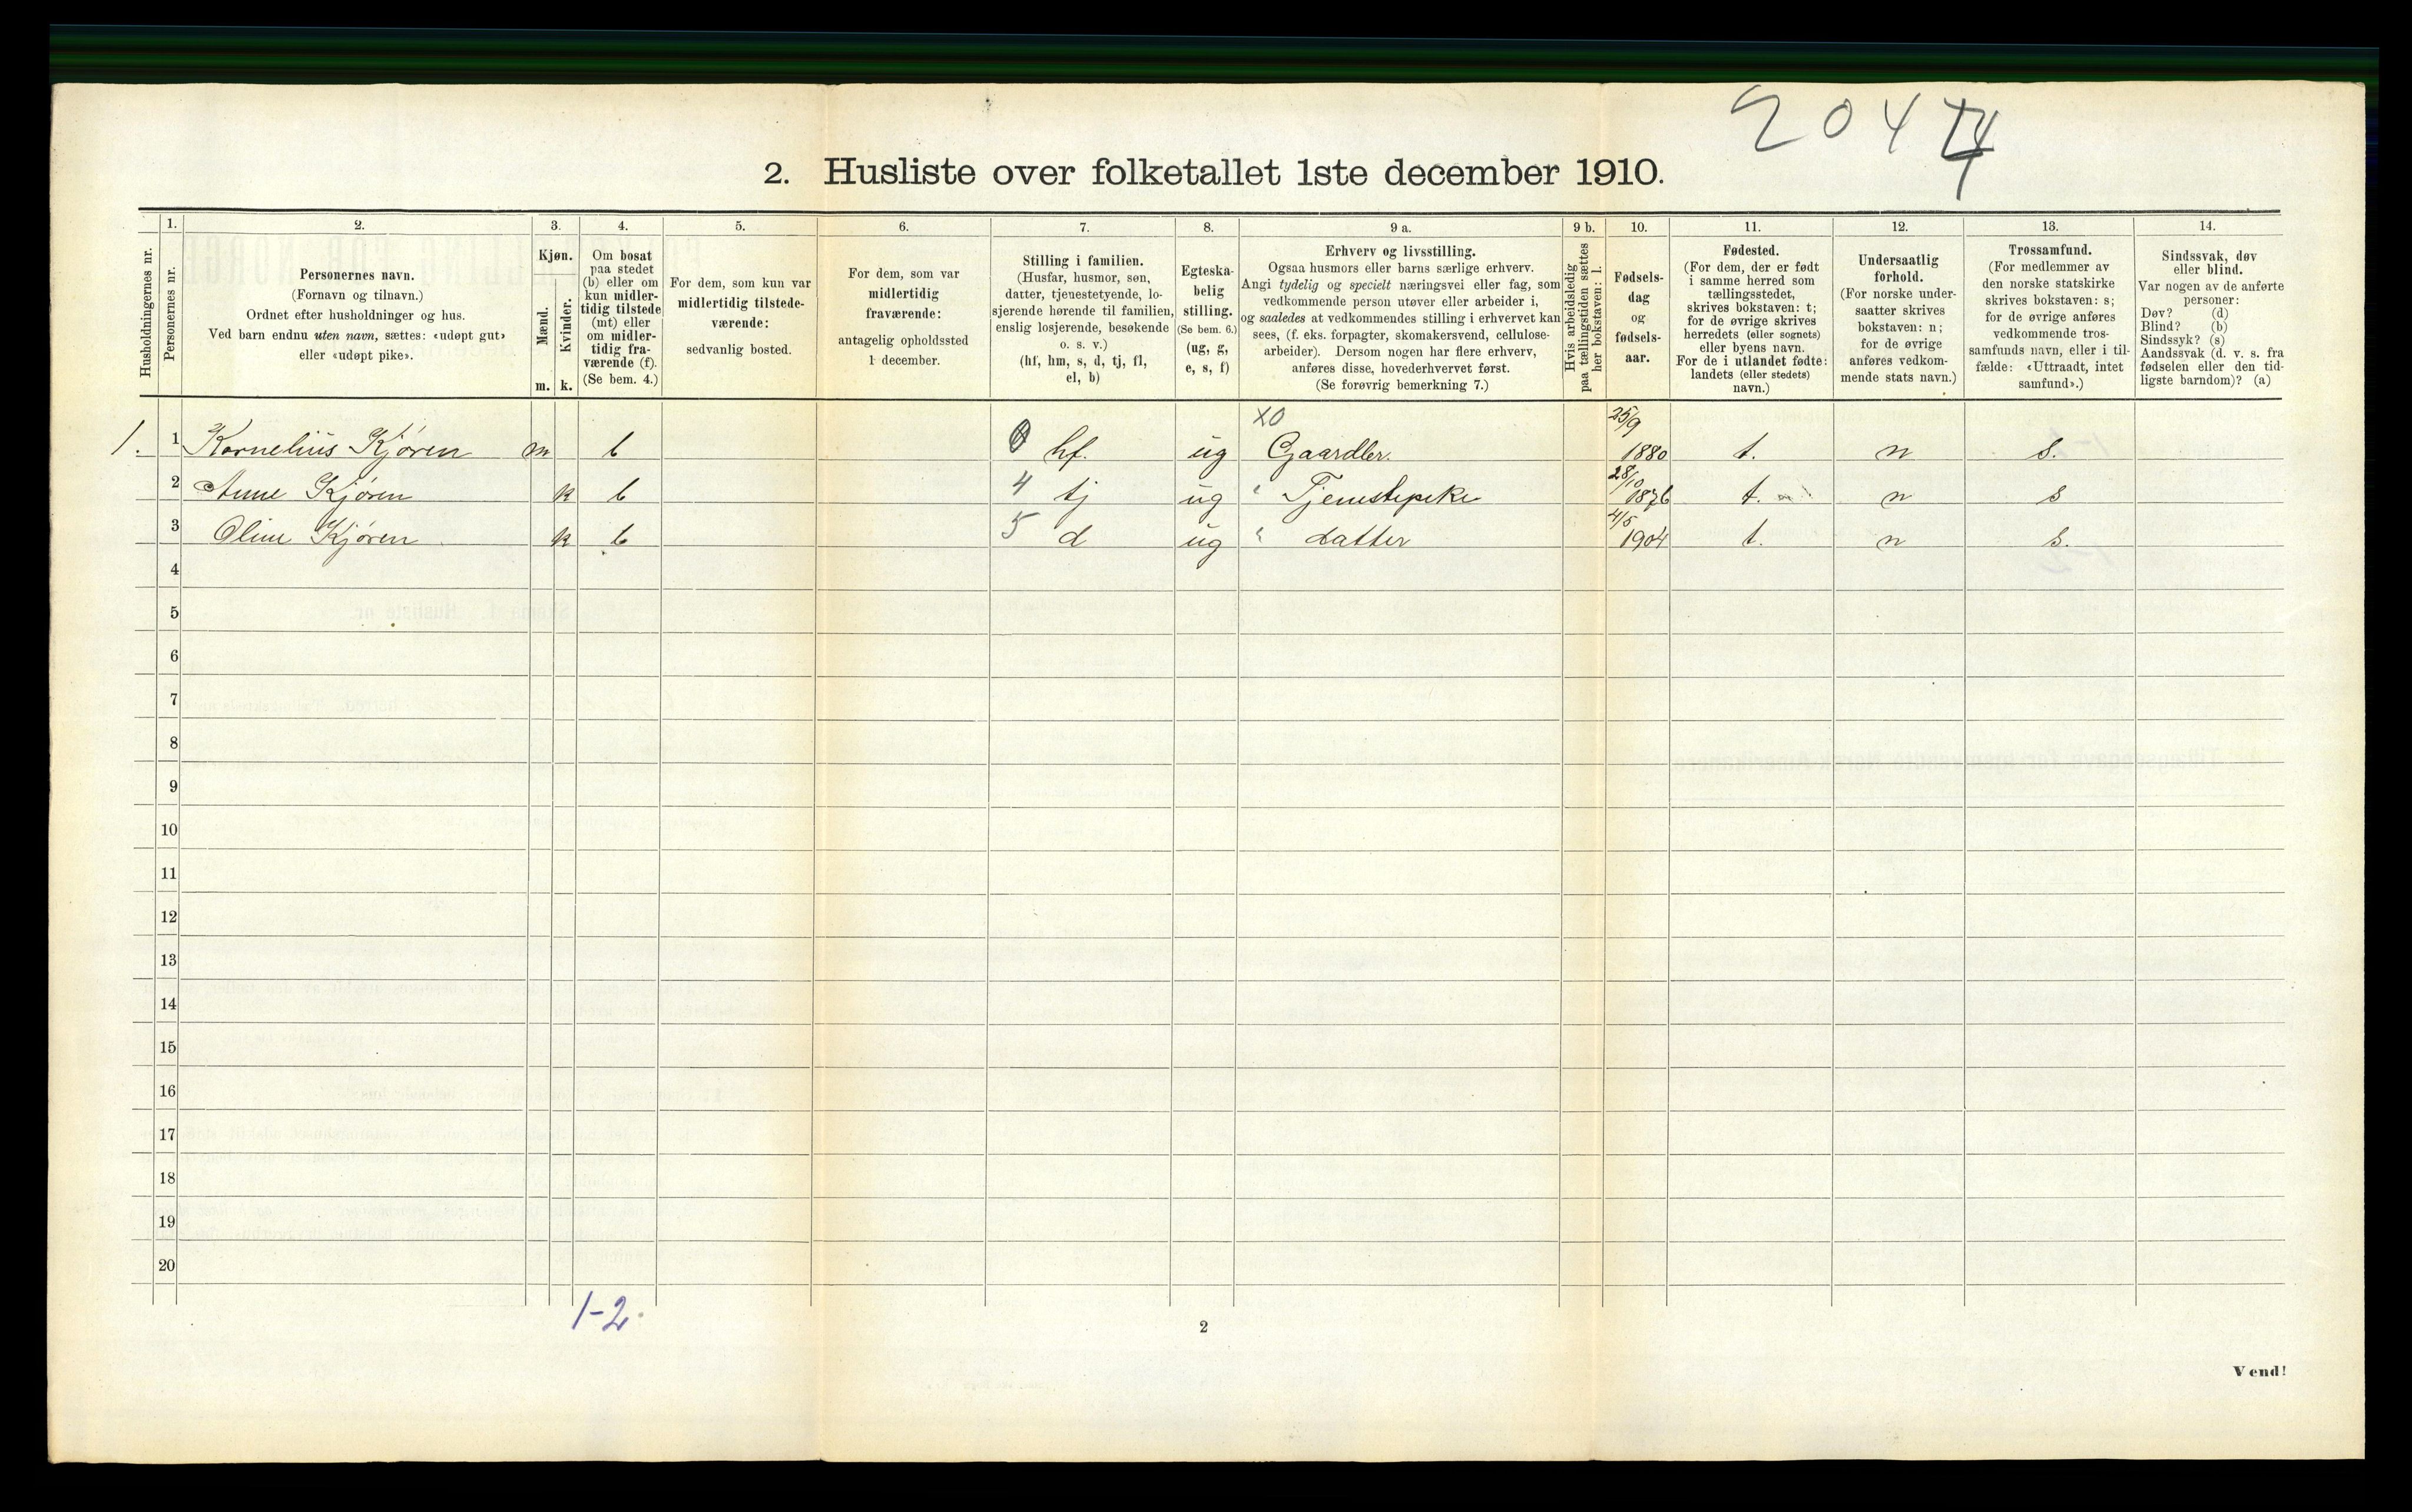 2044
2. Husliste over folketallet 1ste december 1910.
Husholdningernes nr.
1.
Personernes nr.
2.
Personernes navn.
(Fornavn og tilnavn.)
Ordnet efter husholdninger og hus.
Ved barn endnu uten navn, sættes: «udøpt gut»
eller «udøpt pike».
3.
Kjøn.
Mænd.
m.
Kvinder.
k.
4.
Om bosat
paa stedet
(b) eller om
kun midler-
tidig tilstede
(mt) eller
om midler-
tidig fra-
værende (f).
(Se bem. 4.)
5.
For dem, som kun var
midlertidig tilstede-
værende:
sedvanlig bosted.
6.
For dem, som var
midlertidig
fraværende:
antagelig opholdssted
1 december.
7.
Stilling i familien.
(Husfar, husmor, søn,
datter, tjenestetyende, lo-
sjerende hørende til familien,
enslig losjerende, besøkende
o. s. v.)
(hf, hm, s, d, tj, fl,
el, b)
8.
Egteska-
belig
stilling.
(Se bem. 6.)
(ug, g,
e, s, f)
9 a.
Erhverv og livsstilling.
Ogsaa husmors eller barns særlige erhverv.
Angi tydelig og specielt næringsvei eller fag, som
vedkommende person utøver eller arbeider i,
og saaledes at vedkommendes stilling i erhvervet kan
sees, (f. eks. forpagter, skomakersvend, cellulose-
arbeider). Dersom nogen har flere erhverv,
anføres disse, hovederhvervet først.
(Se forøvrig bemerkning 7.)
9 b.
Hvis arbeidsledig
paa tællingstiden sættes
her bokstaven: l.
10.
Fødsels-
dag
og
fødsels-
aar.
11.
Fødested.
(For dem, der er født
i samme herred som
tællingsstedet,
skrives bokstaven: t;
for de øvrige skrives
herredets (eller sognets)
eller byens navn.
For de i utlandet fødte:
landets (eller stedets)
navn.)
12.
Undersaatlig
forhold.
(For norske under-
saatter skrives
bokstaven: n;
for de øvrige
anføres vedkom-
mende stats navn.)
13.
Trossamfund.
(For medlemmer av
den norske statskirke
skrives bokstaven: s;
for de øvrige anføres
vedkommende tros-
samfunds navn, eller i til-
fælde: «Uttraadt, intet
samfund».)
14.
Sindssvak, døv
eller blind.
Var nogen av de anførte
personer:
Døv? (d)
Blind? (b)
Sindssyk? (s)
Aandssvak (d. v. s. fra
fødselen eller den tid-
ligste barndom)? (a)
1. 1 Kornelius Kjøren m b 0 hf. ug X0 Gaardbr. 25/9 1880 t. n s.
2 Anne Kjøren k b 4 tj ug Tjenestepike 28/10 1876 t. n s
3 Oline Kjøren k b 5 d ug datter 4/5 1904 t. n s.
4
5
6
7
8
9
10
11
12
13
14
15
16
17
18
19
20
1-2.
2
Vend!